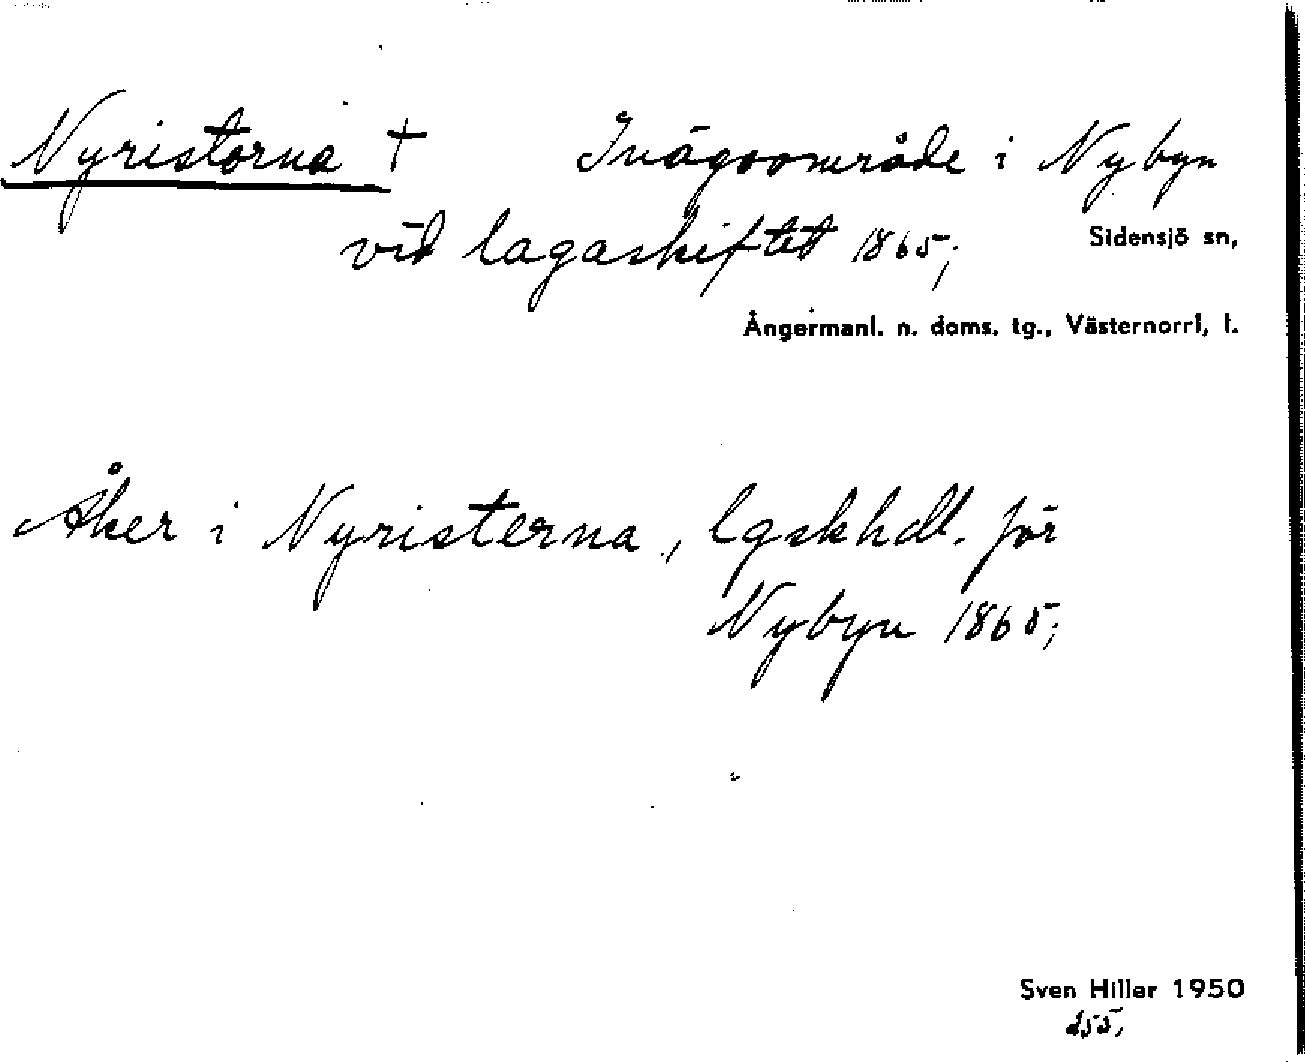 Nyristorna † Inägoområde i Nybyn
vid lagaskiftet 1865;
Sidensjö sn,
Ångermanl. n. doms. tg., Västernorrl, l.
Åker i Nyristerna, lgskhdl. för
Nybyn 1865;
Sven Hillar 1950